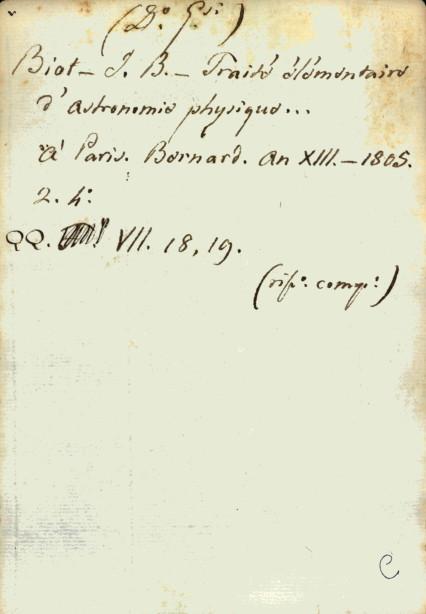 (D.º G.si)
Biot - J. B. - Traité élémentaire
d'astronomie physique...
à Paris. Bernard. An XIII. - 1805.
2. 4º.
QQ. VII. 18, 19.
(rifº. compº.)
C